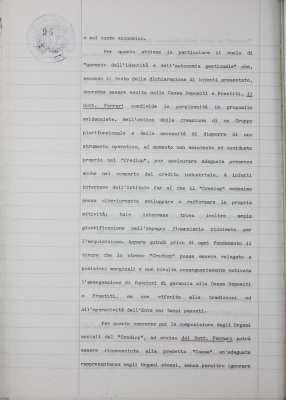 e sul conto economico.
Per quanto attiene in particolare il ruolo di
"garante dell'identità e dell'autonomia gestionale" che,
secondo il testo della dichiarazione di intenti presentato,
dovrebbe essere svolto dalla Cassa Depositi e Prestiti, il
Dott. Ferrari condivide le perplessità in proposito
evidenziate. Nell'ottica della creazione di un Gruppo
plurifunzionale e della necessità di disporre di uno
strumento operativo, al momento non esistente ed individuato
proprio nel "Crediop", per assicurare adeguata presenza
anche nel comparto del credito industriale, è infatti
interesse dell'Istituto far sì che il "Crediop" medesimo
possa ulteriormente sviluppare e rafforzare la propria
attività; tale interesse trova inoltre ampia
giustificazione nell'impegno finanziario richiesto per
l'acquisizione. Appare quindi privo di ogni fondamento il
timore che lo stesso "Crediop" possa essere relegato a
posizioni marginali e non risulta conseguentemente motivata
l'assegnazione di funzioni di garanzia alla Cassa Depositi
e Prestiti, se non riferita alle tradizioni ed
all'operatività dell'Ente nei tempi passati.
Per quanto concerne poi la composizione degli Organi
sociali del "Crediop", ad avviso del Dott. Ferrari potrà
essere riconosciuta alla predetta "Cassa" un'adeguata
rappresentanza negli Organi stessi, senza peraltro ignorare